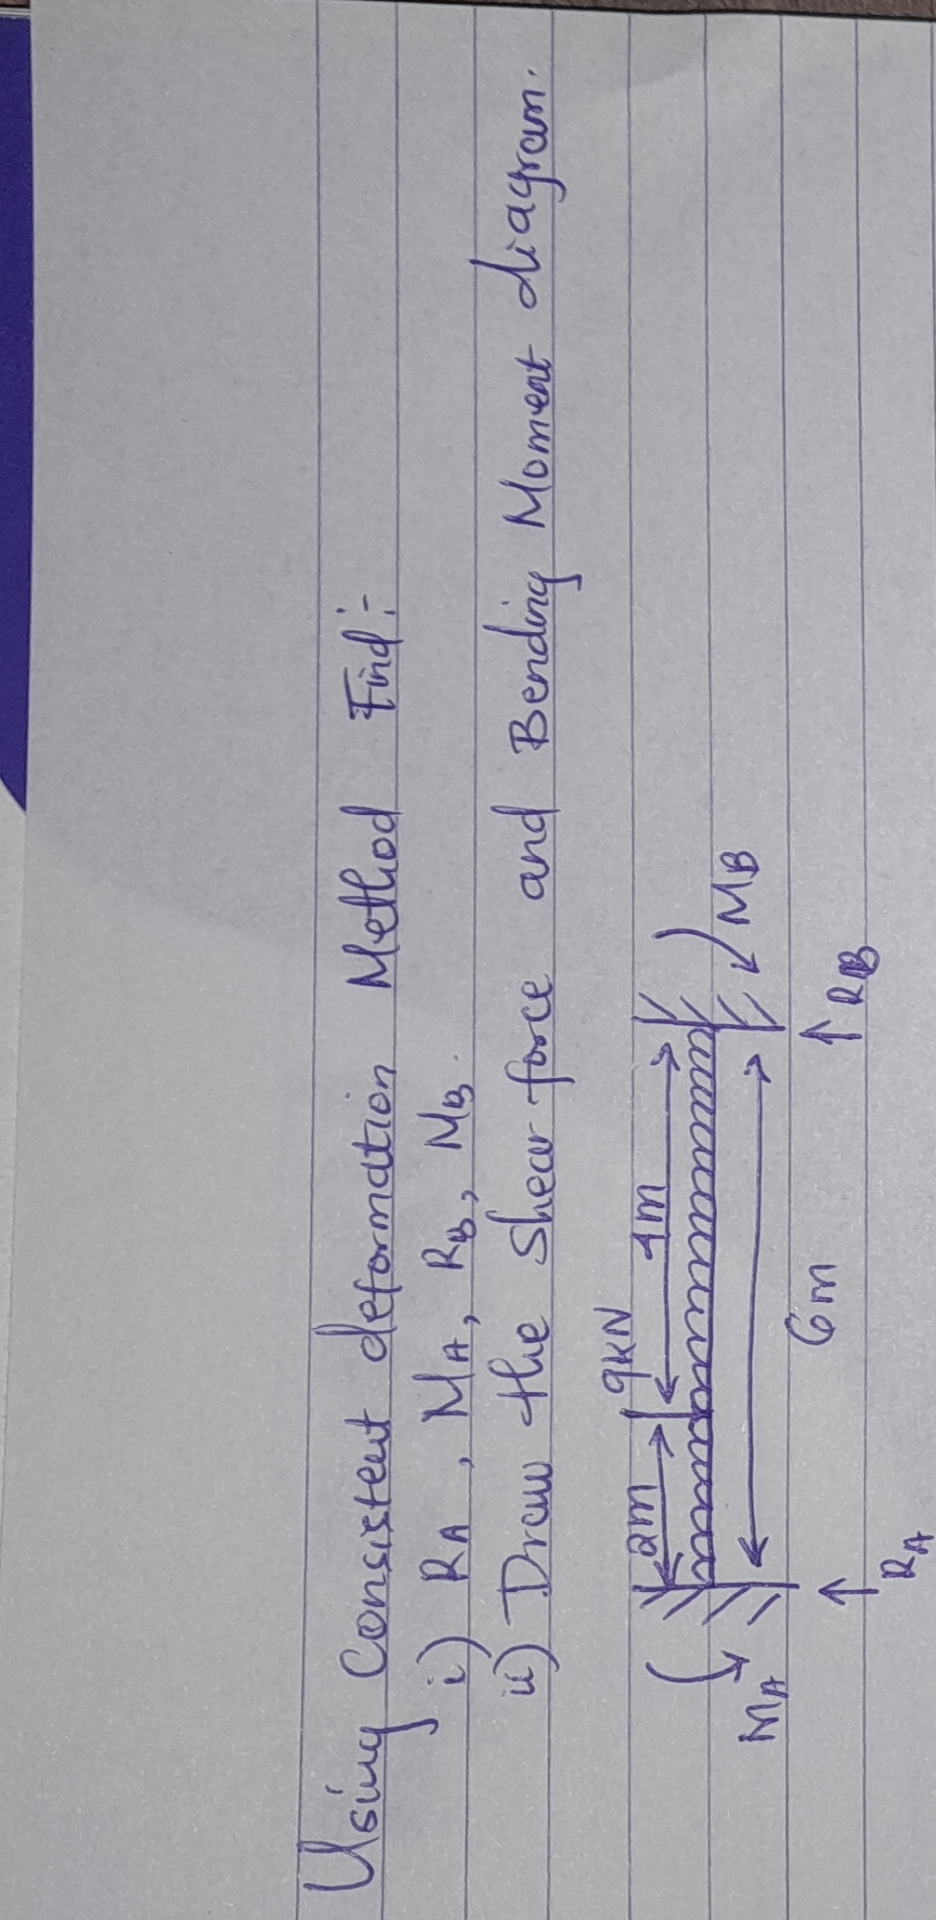 Using Consistent deformation Method Find:-
i) RA, MA, RB, MB.
ii) Draw the Shear force and Bending Moment diagram.
9KN
2m 4m
MA MB
6m
RA RB